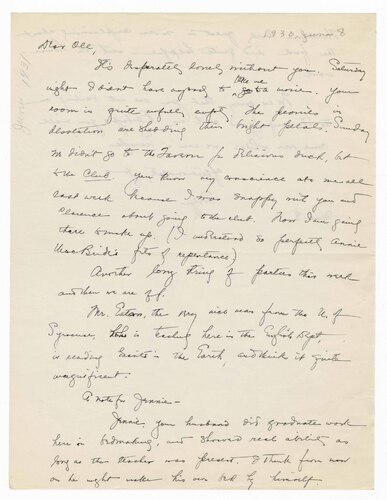 June 8
June 1931
Dear Ole,
It's desperately lonely without you. Saturday
night I didn't have anybody to take me
to a movie. Your
room is quite awfully empty. The peonies in
desolation are shedding their bright petals. Sunday
we didn't go to the Tavern for delicious duck, but
to the Club. You know my conscience ate me all
last week because I was snappy with you and
Clarence about going to the club. Now I am going
there to make up. (I understand so perfectly Annie
MacBride's fits of repentance)
Another long string of parties this week
and then we are off.
Mr. Eaton, the very nice man from the U. of
Syracuse, who is teaching here in the English Dept.
is reading Giants in the Earth, and thinks it quite
magnificent.
A note for Jennie —
Jennie, your husband did graduate work
here in bedmaking, and showed real ability as
long as the teacher was present. I think from now
on he might make his own bed by himself